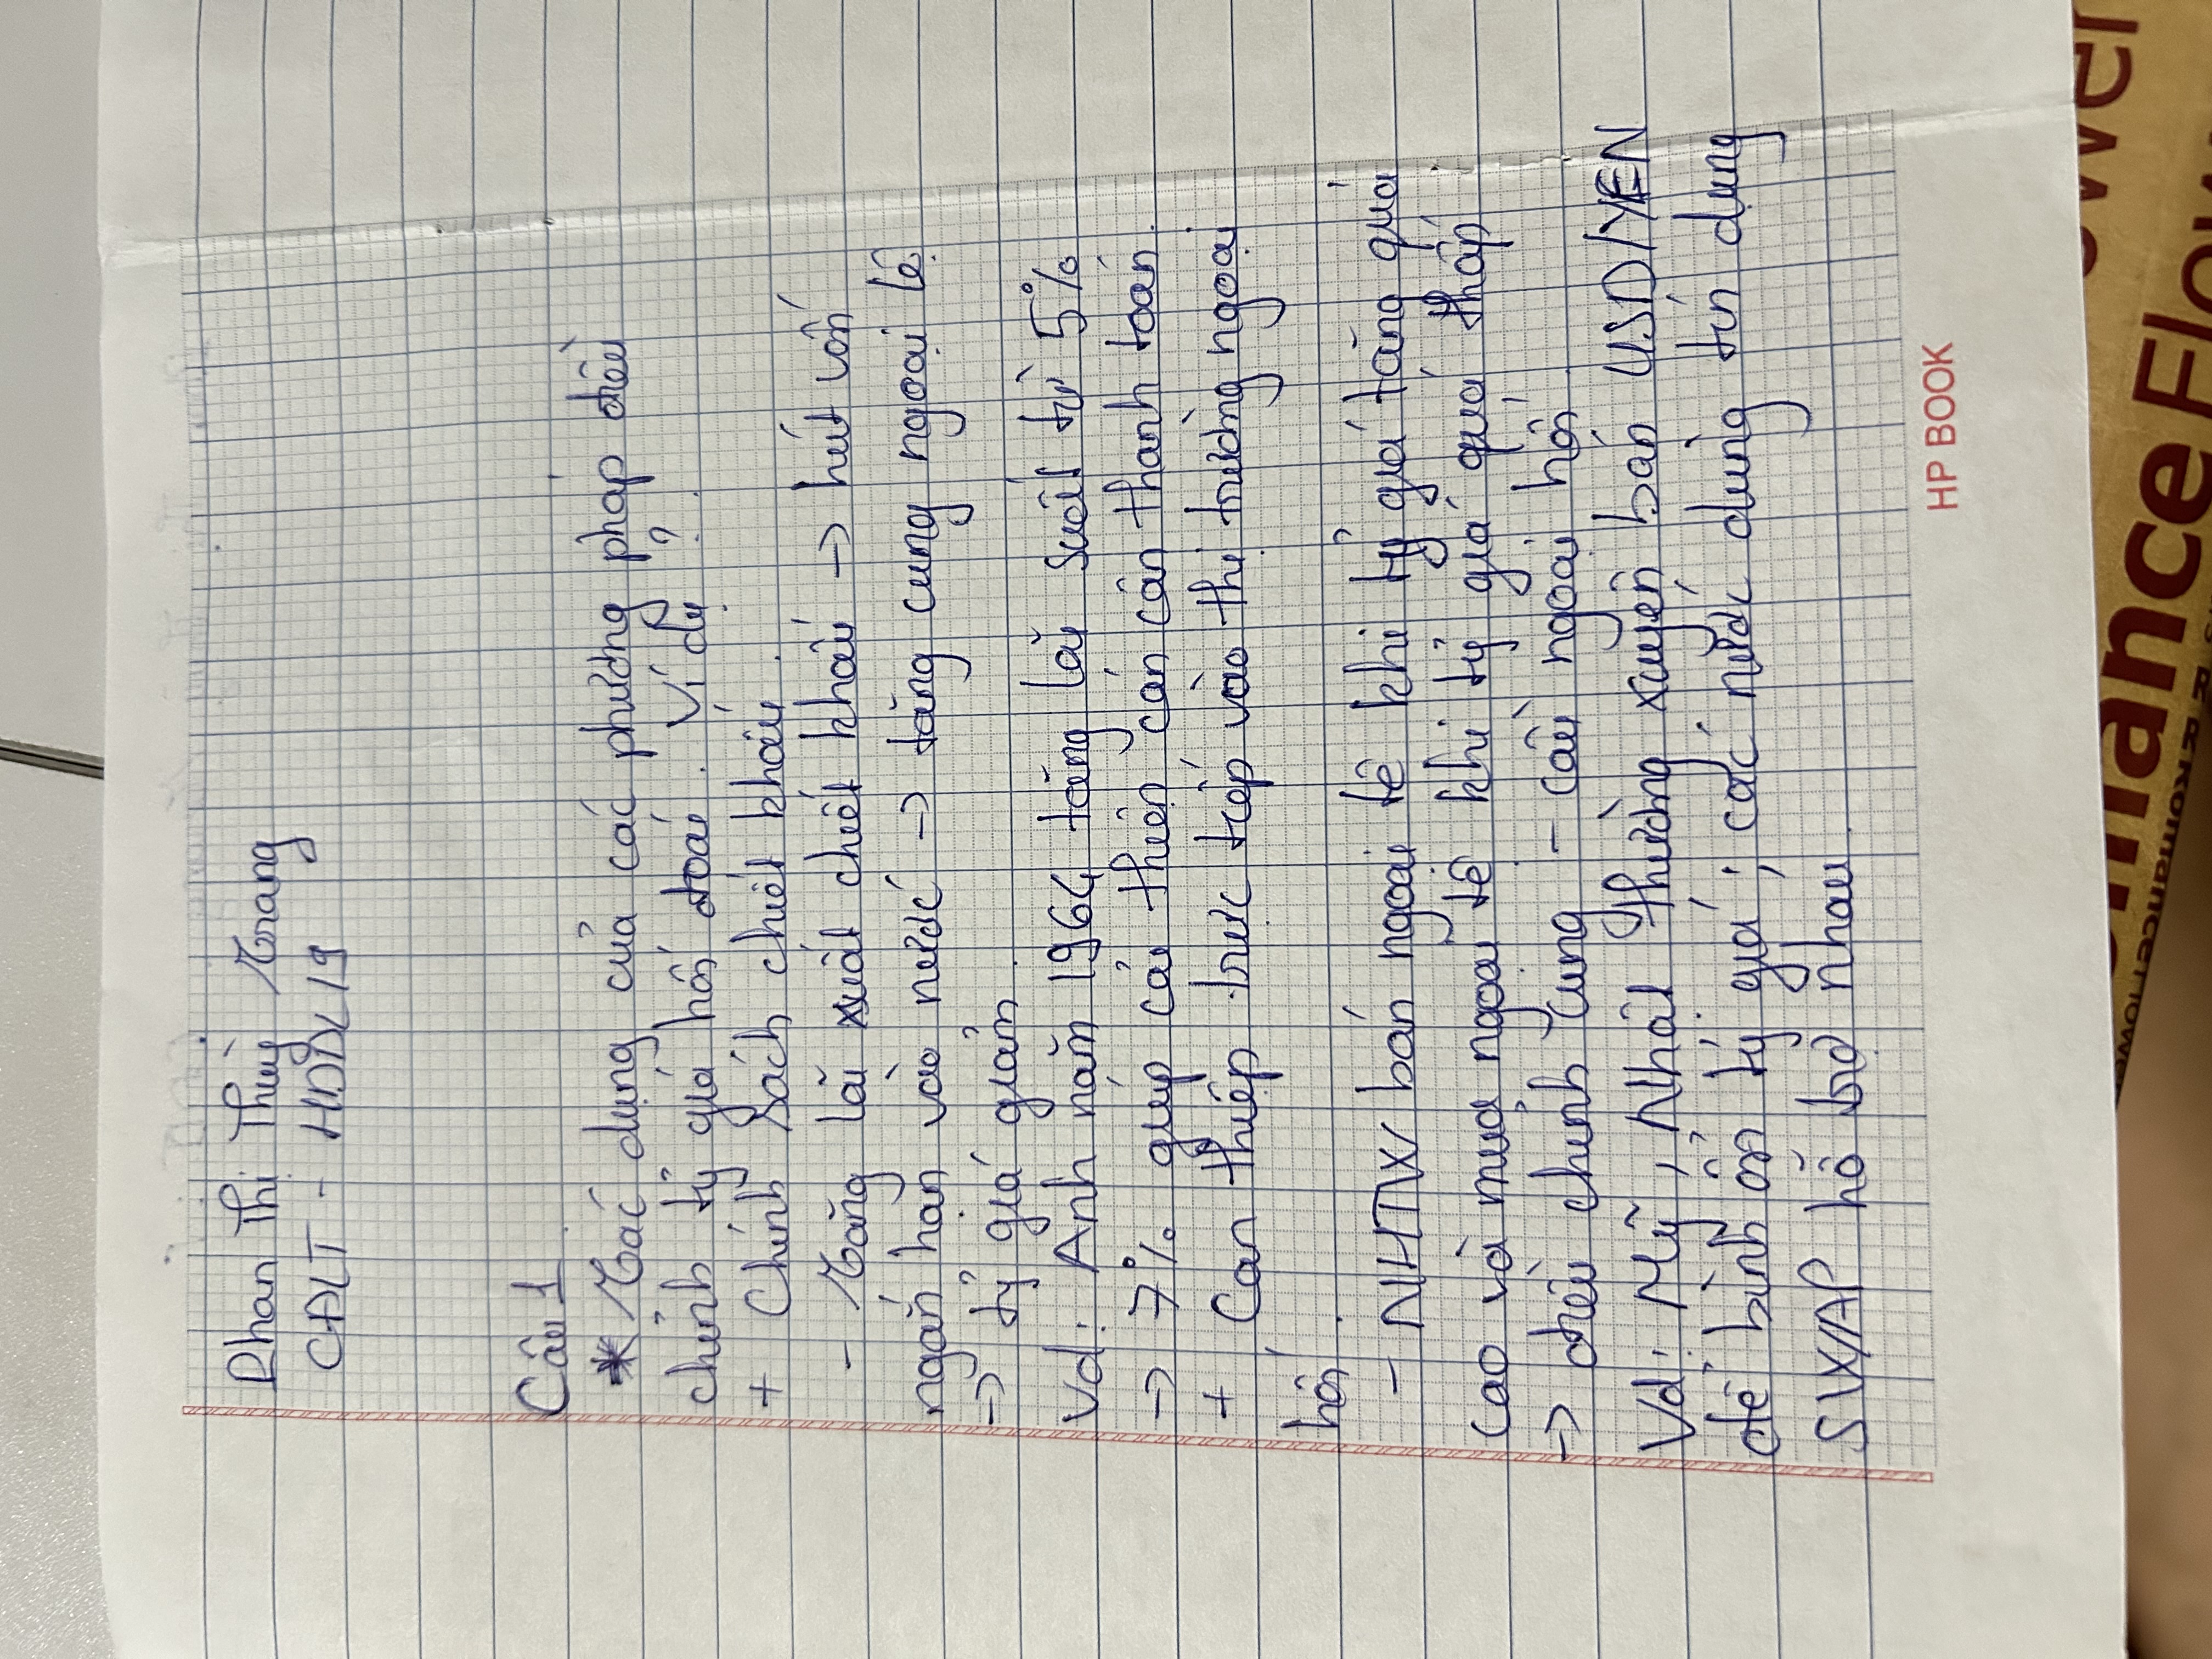 Phan Thị Thùy Trang
CĐLT - HDDL19
Câu 1
* Tác dụng của các phương pháp điều
chỉnh tỷ giá hối đoái. Ví dụ?
+ Chính sách chiết khấu.
- Tăng lãi xuất chiết khấu -> hút vốn
ngắn hạn vào nước -> tăng cung ngoại tệ.
-> tỷ giá giảm.
Vd: Anh năm 1964 tăng lãi suất từ 5%
-> 7% giúp cải thiện cán cân thanh toán.
+ Can thiệp trực tiếp vào thị trường ngoại
hối.
- NHTW bán ngoại tệ khi tỷ giá tăng quá
cao và mua ngoại tệ khi tỷ giá quá thấp
-> điều chỉnh cung - cầu ngoại hối.
Vd: Mỹ, Nhật thường xuyên bán USD/YEN
để bình ổn tỷ giá; các nước dùng tín dụng
SWAP hỗ trợ nhau.
HP BOOK
mance Flower
Romance